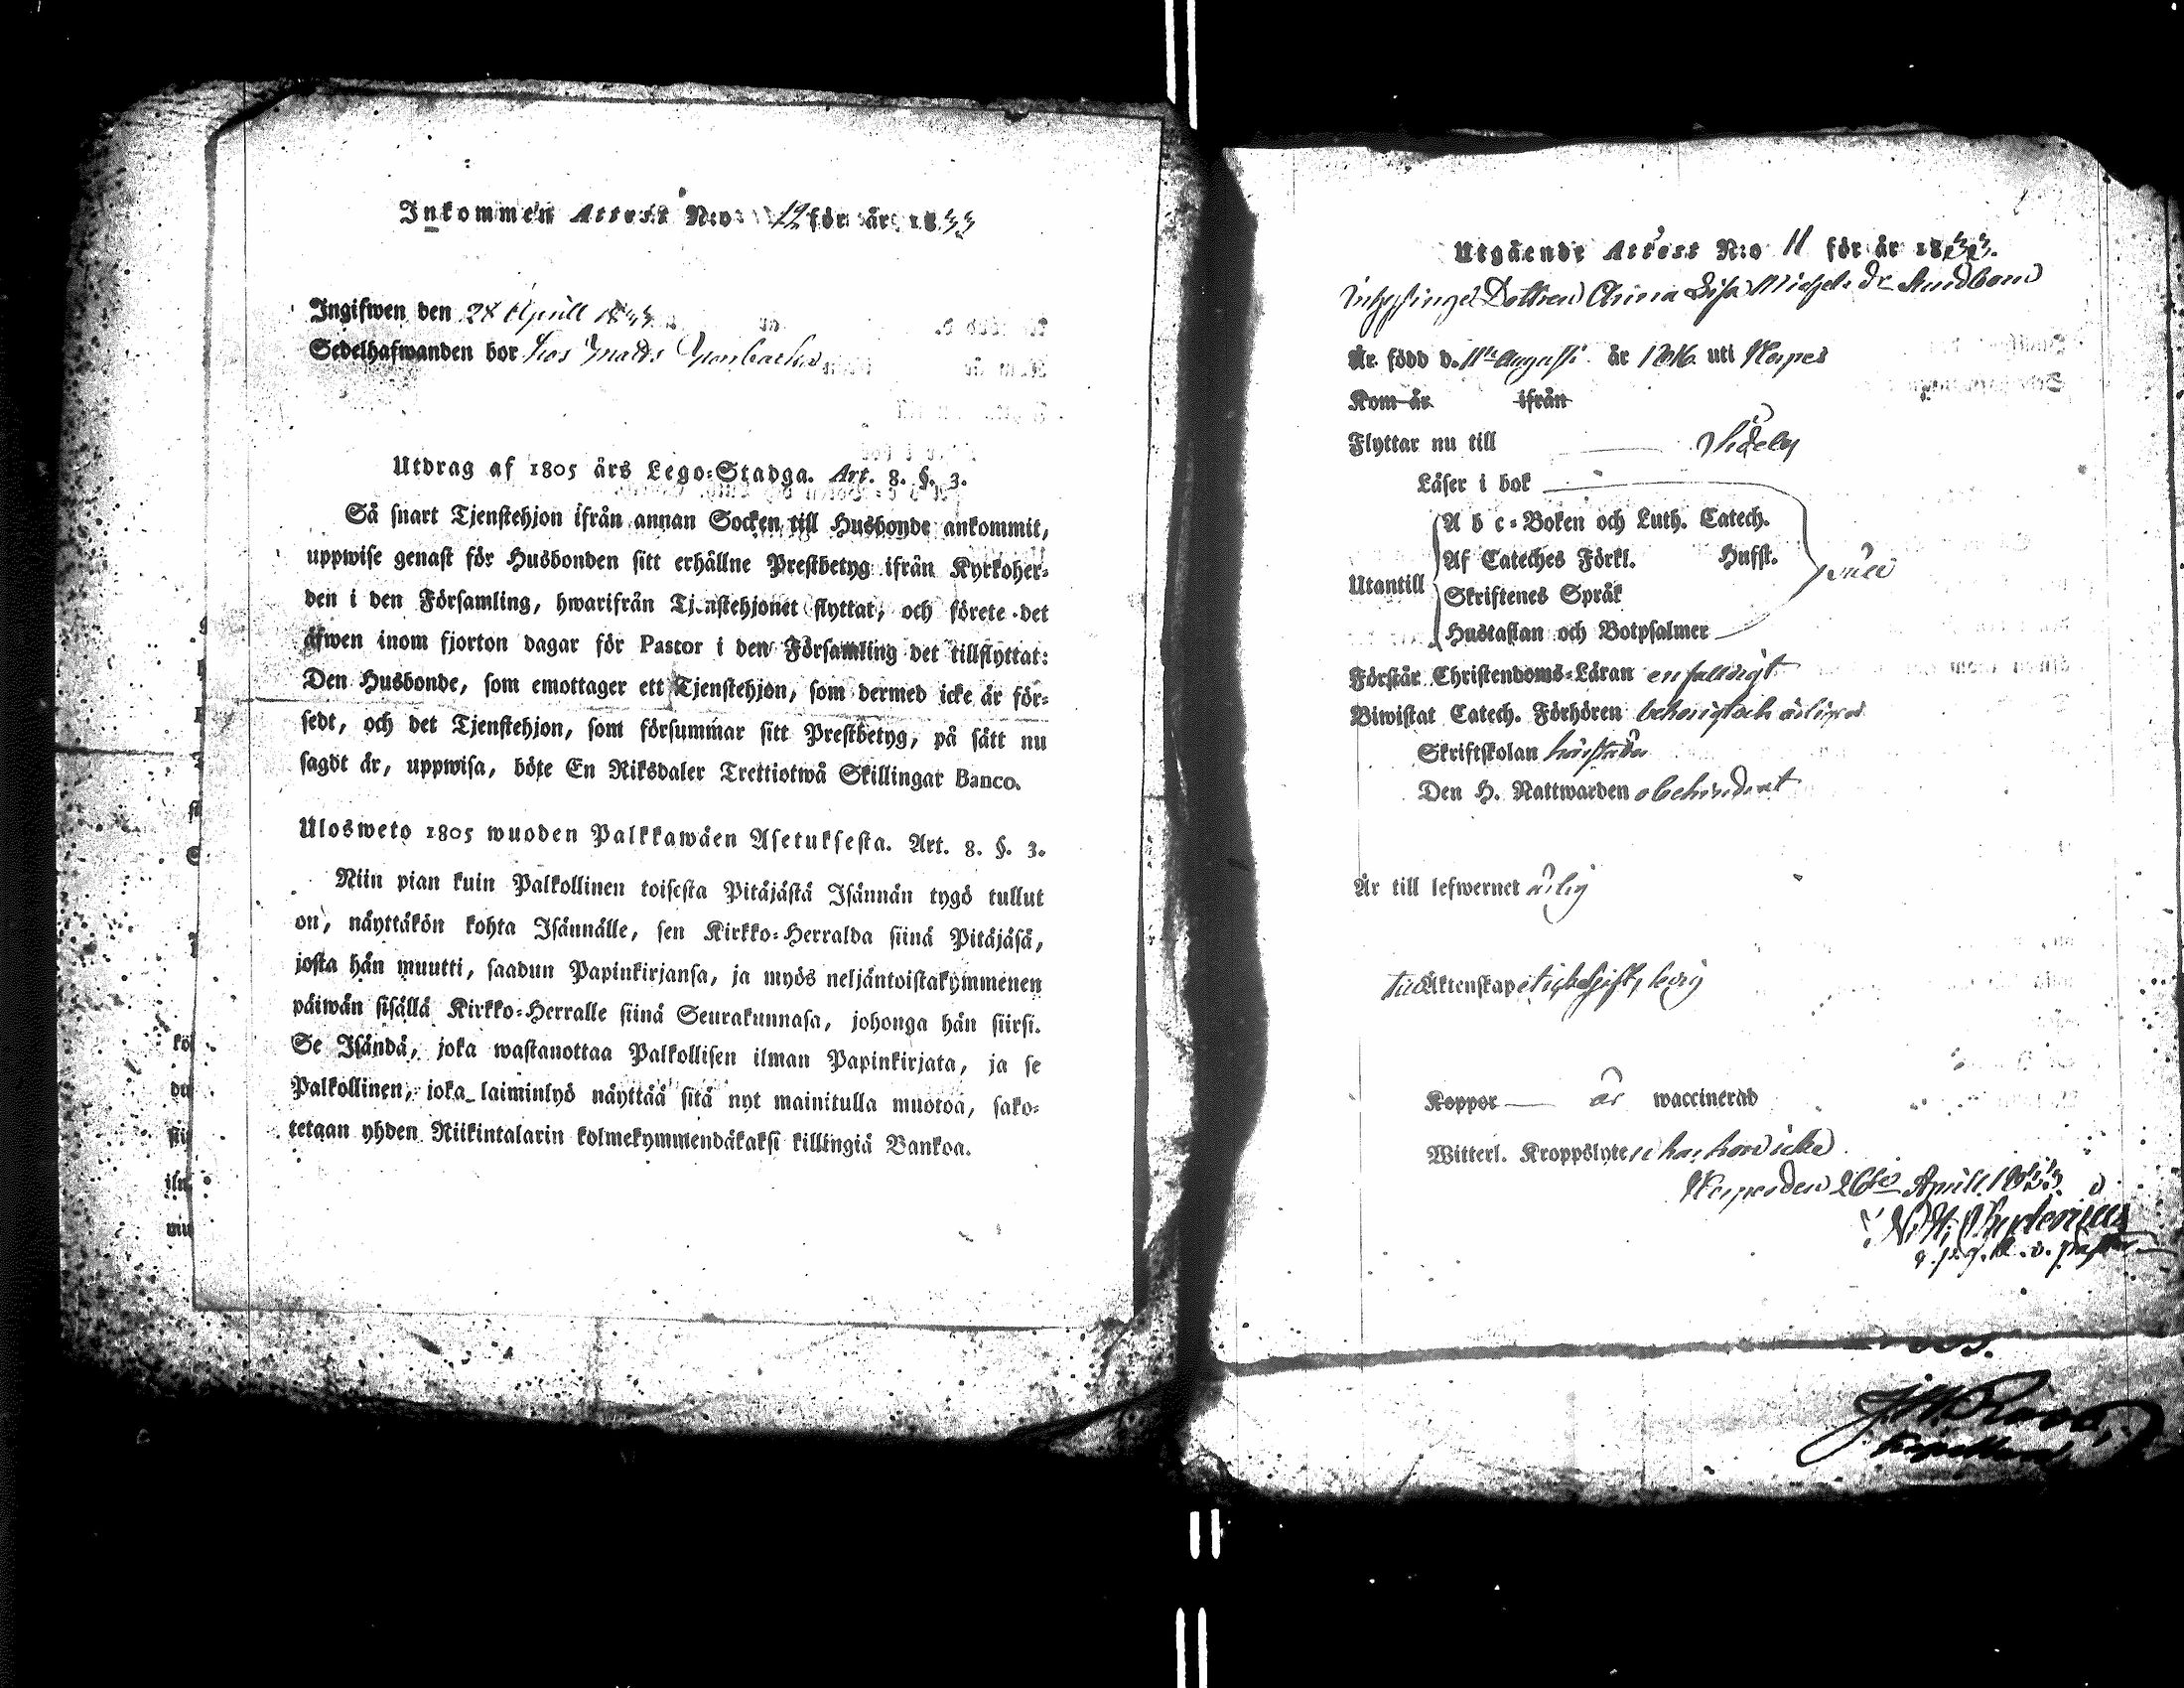 Inkommen Attest N:o 12 för år 1833
Ingifwen den 28 Aprill 1833
Sedelhafwanden bor hos Matts
Utdrag af 1805 års Lego-Stadga. Art. 8. §. 3.
Så snart Tjenstehjon ifrån annan Socken till Husbonde ankommit,
uppwise genast för Husbonden sitt erhållne Prestbetyg ifrån Kyrkoher-
den i den Församling, hwarifrån Tjenstehjonet flyttat, och förete det
äfwen inom fjorton dagar för Pastor i den Församling det tillflyttat:
Den Husbonde, som emottager ett Tjenstehjon, som dermed icke är för-
sedt, och det Tjenstehjon, som försummar sitt Prestbetyg, på sätt nu
sagdt är, uppwisa, böte En Riksdaler Trettiotwå Skillingar Banco.
Ulosweto 1805 wuoden Palkkawäen Asetuksesta. Art. 8. §. 3.
Niin pian kuin Palkollinen toisesta Pitäjästä Isännän tygö tullut
on, näyttäkön kohta Isännälle, sen Kirkko-Herralda siinä Pitäjäsä,
josta hän muutti, saadun Papinkirjansa, ja myös neljäntoistakymmenen
päiwän sisällä Kirkko-Herralle siinä Seurakunnasa, johonga hän siirsi.
Se Isändä, joka wastanottaa Palkollisen ilman Papinkirjata, ja se
Palkollinen, joka laiminlyö näyttää sitä nyt mainitulla muotoa, sako-
tetaan yhden Riikintalarin kolmekymmendäkaksi killingiä Bankoa.
Utgående Attest N:o 11 för år 1833.
Inhysinge Dottren Anna Lisa Michels Dr Sundbom
Är född d. 11te Augusti år 1816 uti Kerpes
Kom år ifrån
Flyttar nu till Sideby
Läser i bok
A b c-Boken och Luth. Catech.
Af Cateches Förkl. Husst.
Utantill
Skriftenes Språk
Hustaflan och Botpsalmer
Förstår Christendoms-Läran enfalldigt
Biwistat Catech. Förhören behörigt och årligen
Skriftskolan härstädes
Den H. Nattwarden obehindrat
Är till lefwernet ärlig
till Äktenskap ledig
Koppor är waccinerad
Witterl. Kroppslyte har hon icke
den 26te Aprill 1833